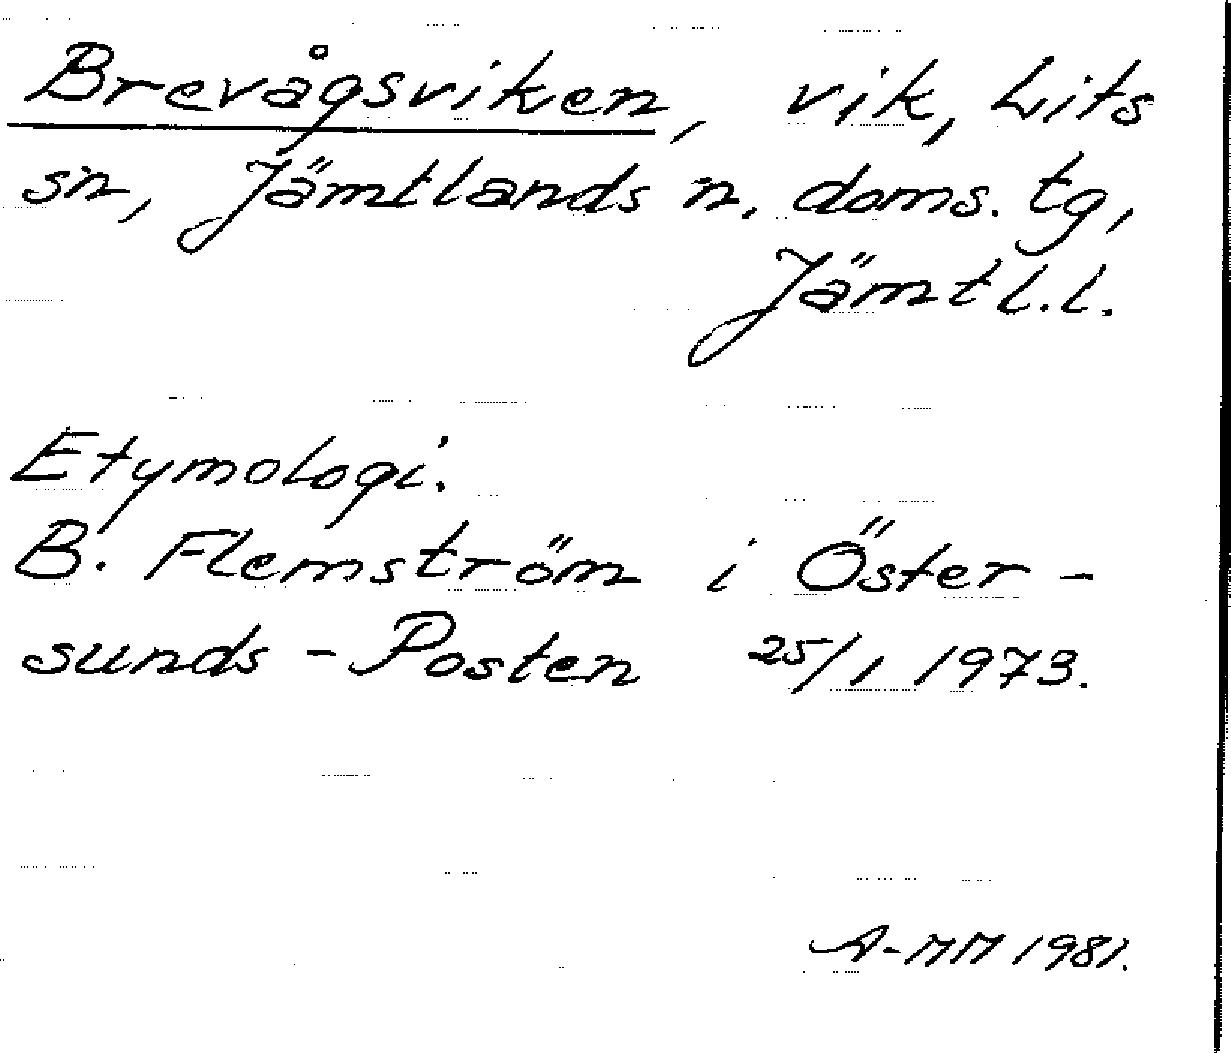 Brevågsviken, vik, Lits
sn, Jämtlands n. doms. tg,
Jämtl.l.
Etymologi.
B. Flemström i Öster-
sunds-Posten 25/1 1973.
A-MM 1981.